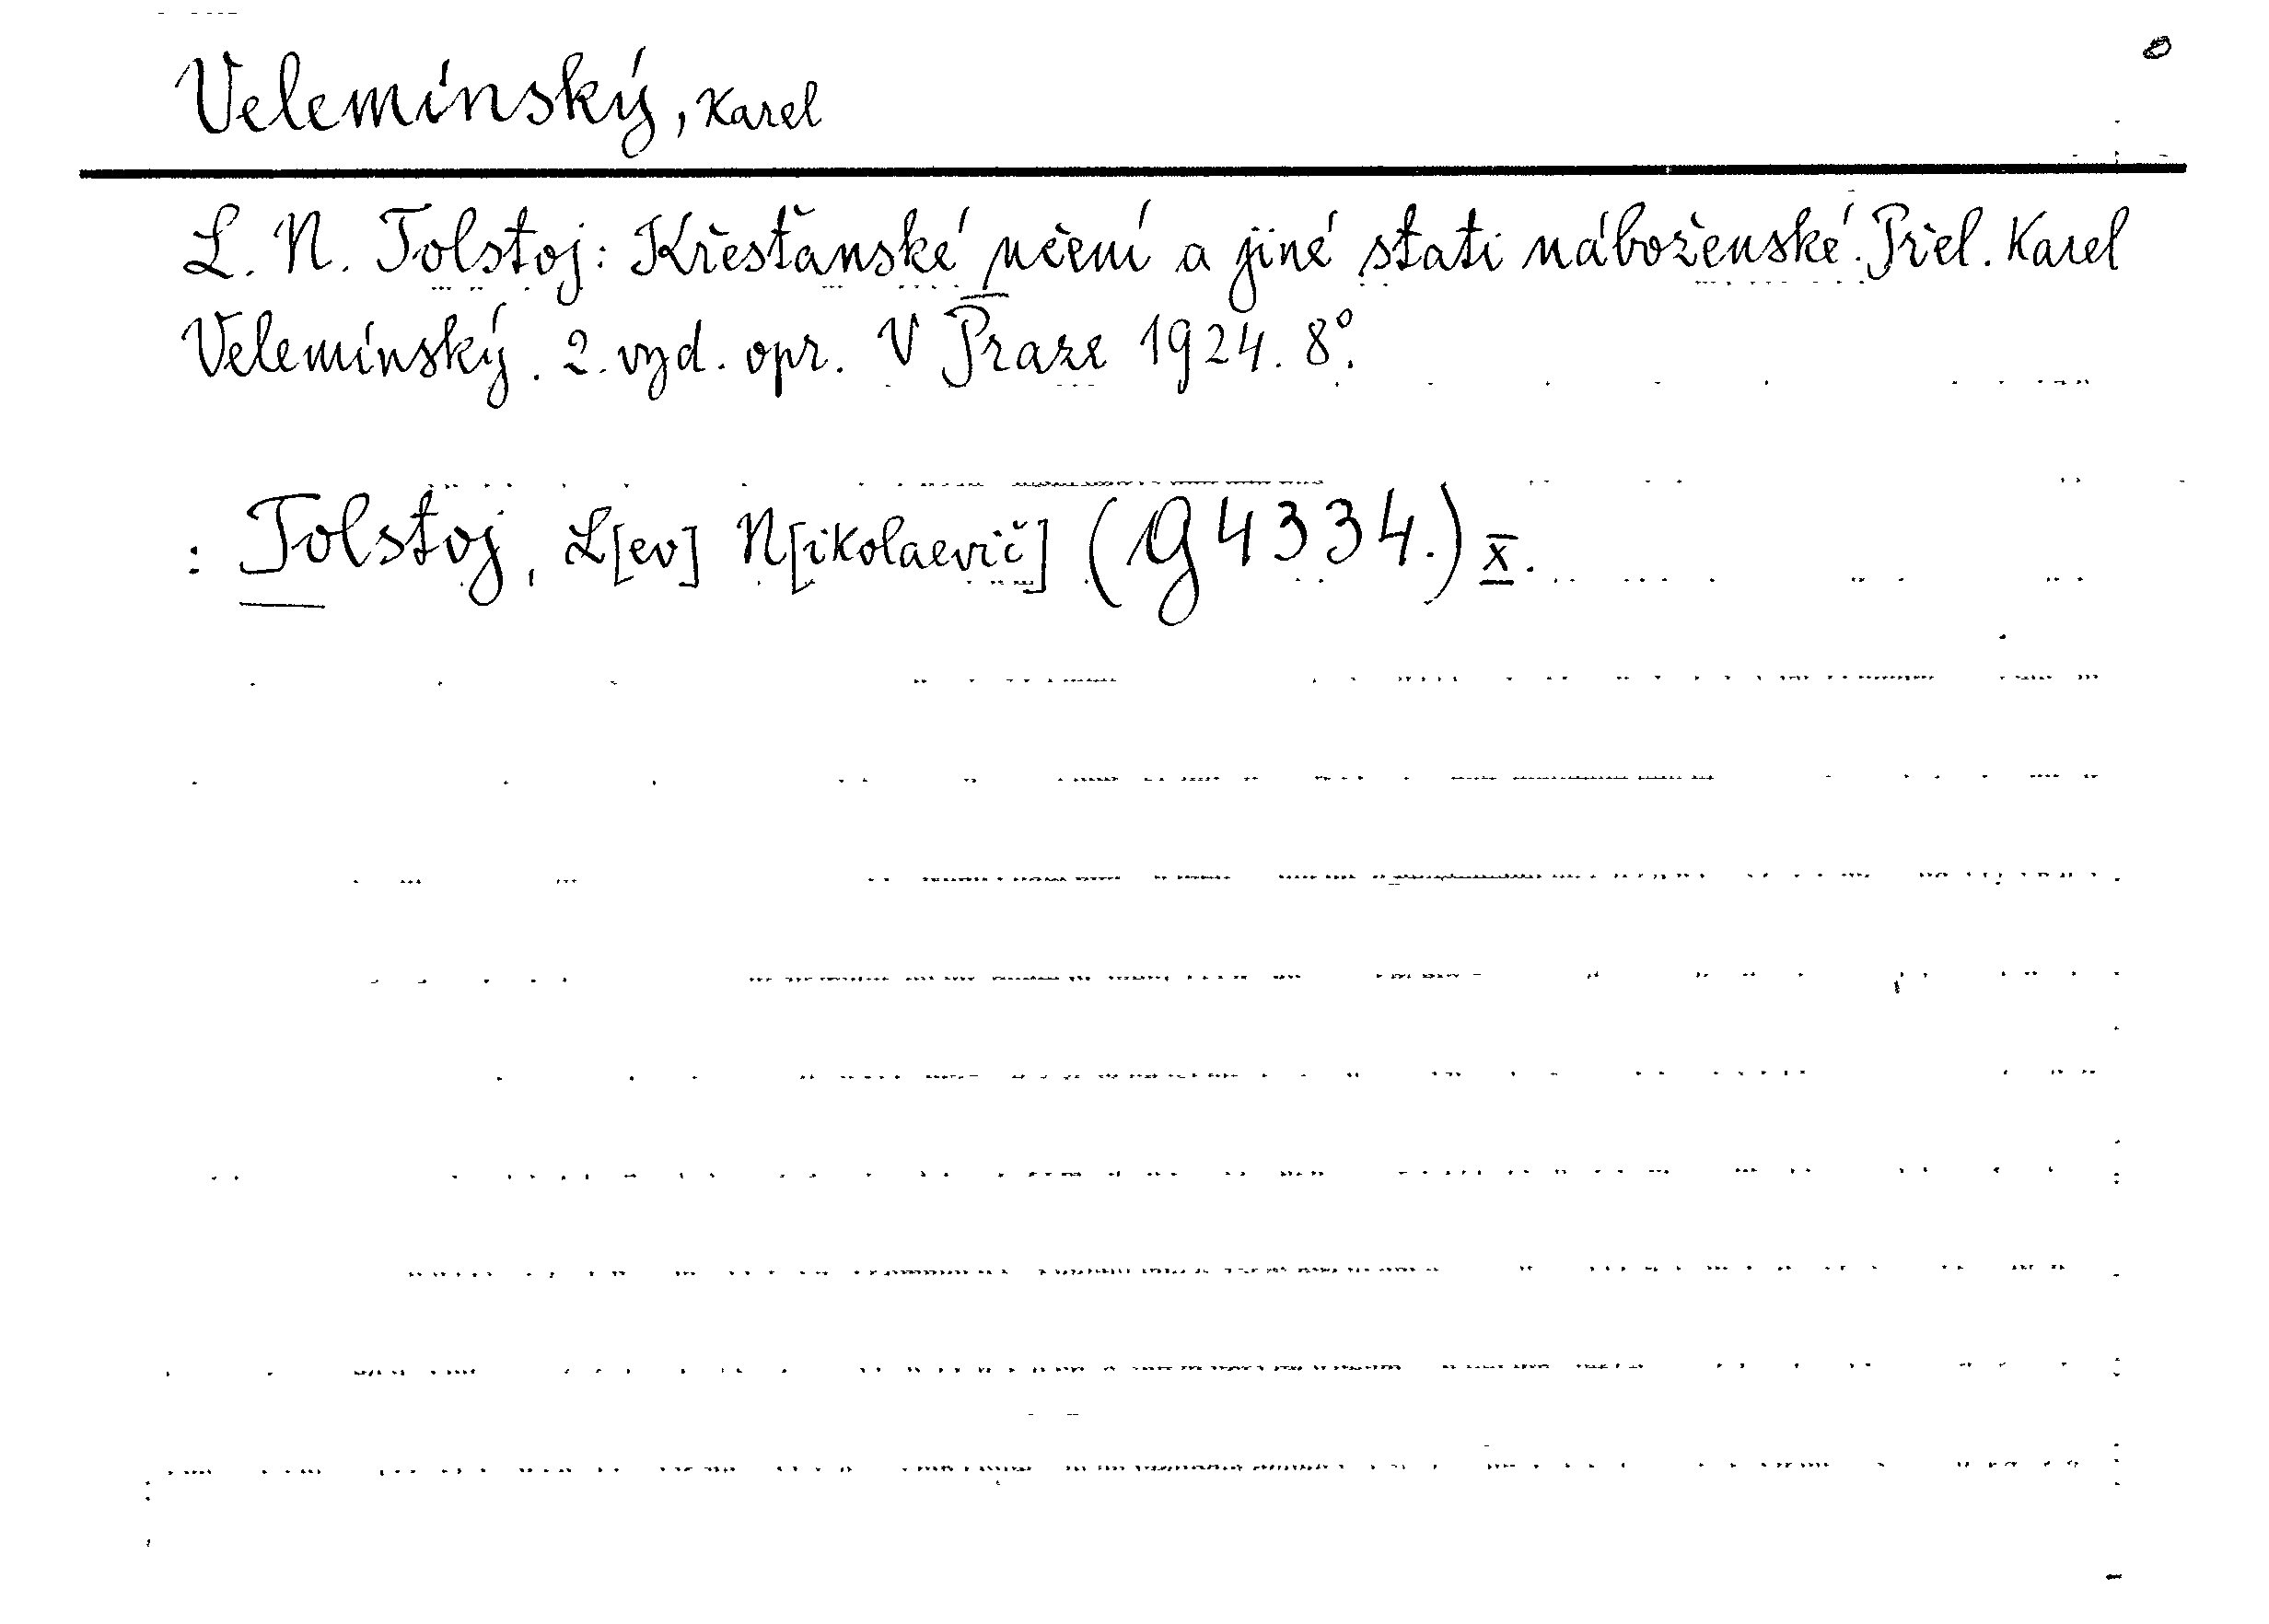 Velemínský, Karel
L. N. Tolstoj: Křesťanské učení a jiné stati náboženské. Přel. Karel
Velemínský. 2. vyd. opr. V Praze 1924. 8°.
: Tolstoj, L[ev] N[ikolaevič] (G 4334.) X.